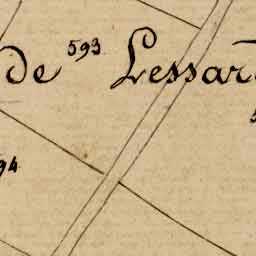 de 593 Lessar
94